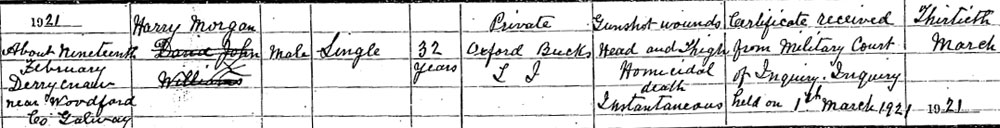 1921
About Nineteenth
February
Derrycnaw
near Woodford
Co Galway
Harry Morgan
David John
Williams
Male
Single
32
years
Private
Oxford Bucks
L I
Gunshot wounds
Head and Thigh
Homicidal
death
Instantaneous
Certificate received
from Military Court
of Inquiry. Inquiry
held on 1st March 1921
Thirtieth
March
1921